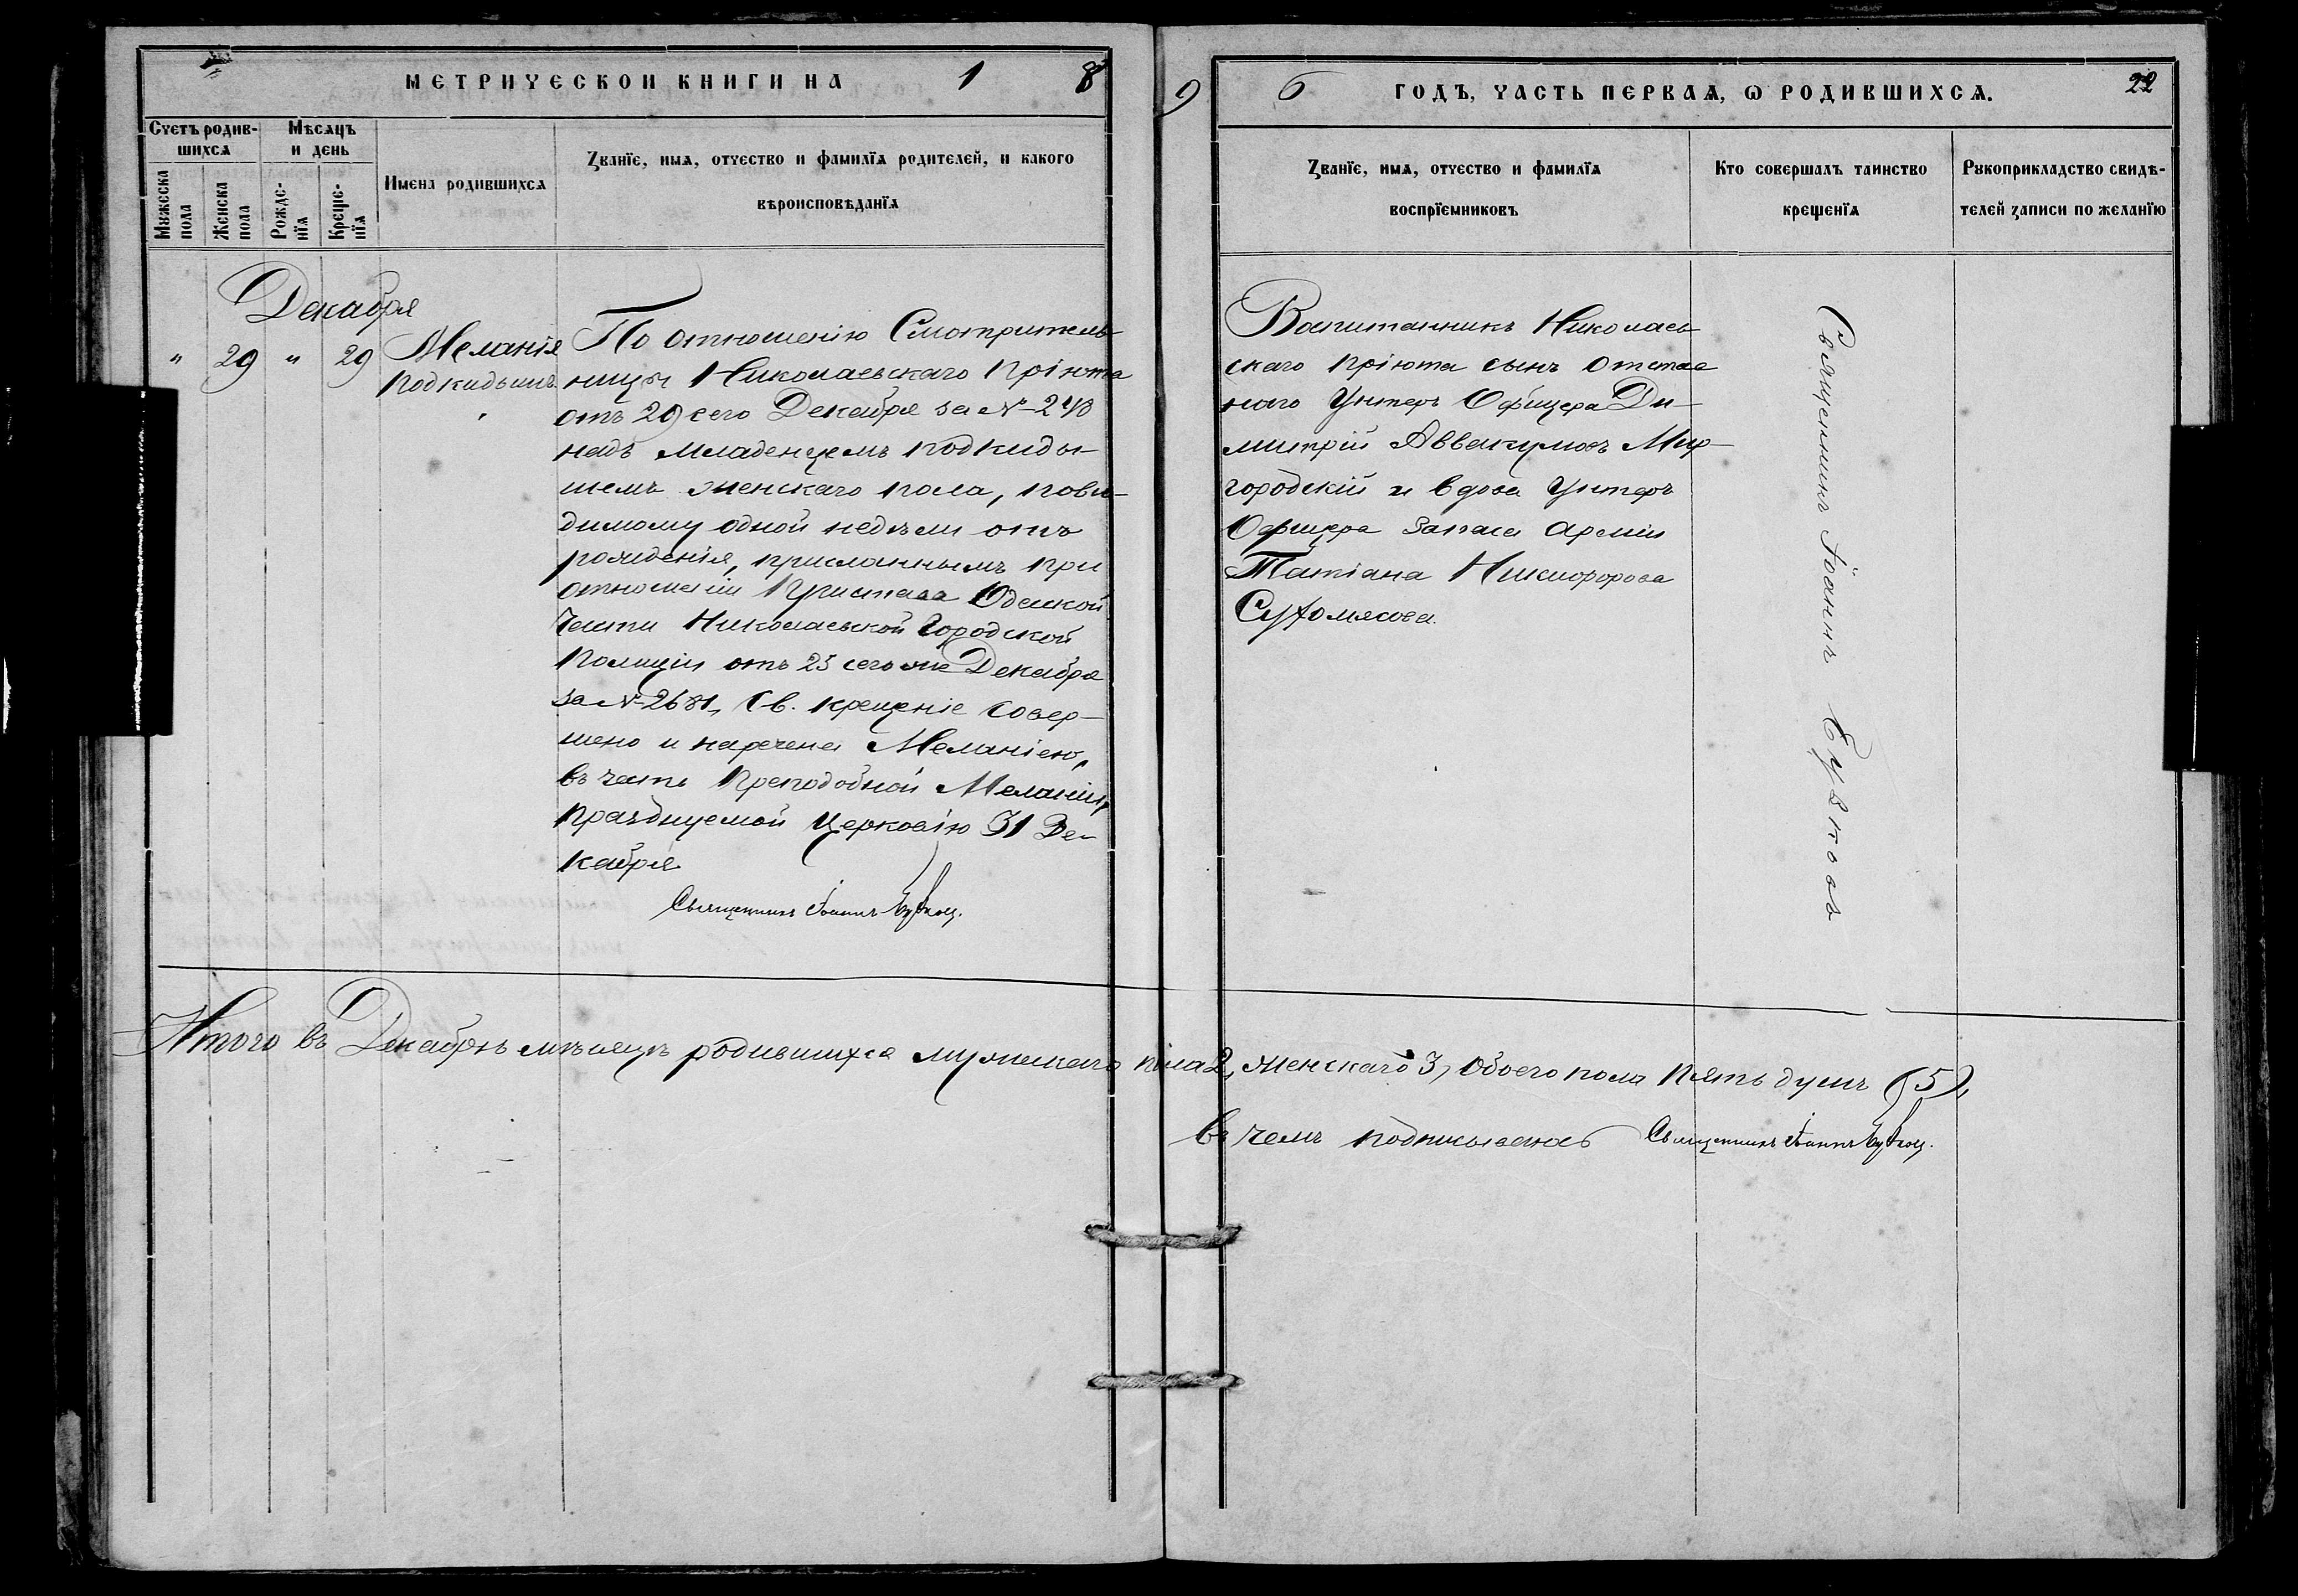 МЕТРИЧЕСКОЙ КНИГИ НА 1 8
9 6 ГОДЪ, ЧАСТЬ ПЕРВАЯ, Ѡ РОДИВШИХСЯ. 22
Счетъ родив-
шихся
Мѣсяцъ
и день
Мужеска
пола
Женска
пола
Рожде-
нїя
Креще-
нїя
Имена родившихся
Званїе, имя, отчество и фамилїя родителей, и какого
вѣроисповѣданїя
Званїе, имя, отчество и фамилїя
воспрїемниковъ
Кто совершалъ таинство
крещенїя
Рукоприкладство свидѣ-
телей записи по желанїю
Декабря
" 29 " 29
Меланія
подкидышъ
По отношенію Смотритель-
ницы Николаевскаго Пріюта
отъ 29 сего Декабря за №
надъ младенцемъ подкиды-
шемъ женскаго пола, пови-
димому одной недѣли отъ
рожденія, присланнымъ при
отношеніи Пристава Одесской
Части Николаевской Городской
Полиціи отъ 25 сего же Декабря
за № 2681, Св. Крещеніе совер-
шено и наречена Меланіею,
въ честь Преподобной Меланіи,
празднуемой Церковію 31 Де-
кабря
Священникъ Іоаннъ
Воспитанникъ Николаев-
скаго пріюта сынъ отстав
наго Унтеръ Офицера Ди-
митрій Аввакумовъ Мир-
городскій и вдова Унтеръ
Офицера запаса Арміи
Татіана Никифорова
Сухомясова
Священникъ Іоаннъ
Итого въ Декабрѣ мѣсяцѣ родившихся мужескаго пола 2, женскаго 3, обоего пола пять душъ (5),
въ чемъ подписываюсь Священникъ Іоаннъ